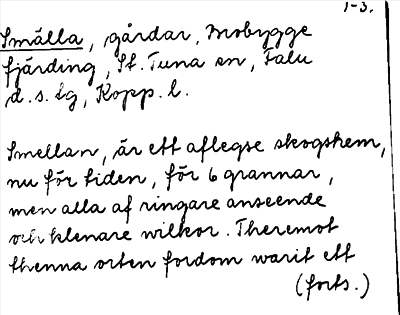 1-3.
Smälla, gårdar, Mobygge
fjärding, St. Tuna sn, Falu
d.s. lg, Kopp. l.
Smellan, är ett aflegse skogshem,
nu för tiden, för 6 grannar,
men alla af ringare anseende
och klenare wilkor. Theremot
thenna orten fordom warit ett
(forts.)